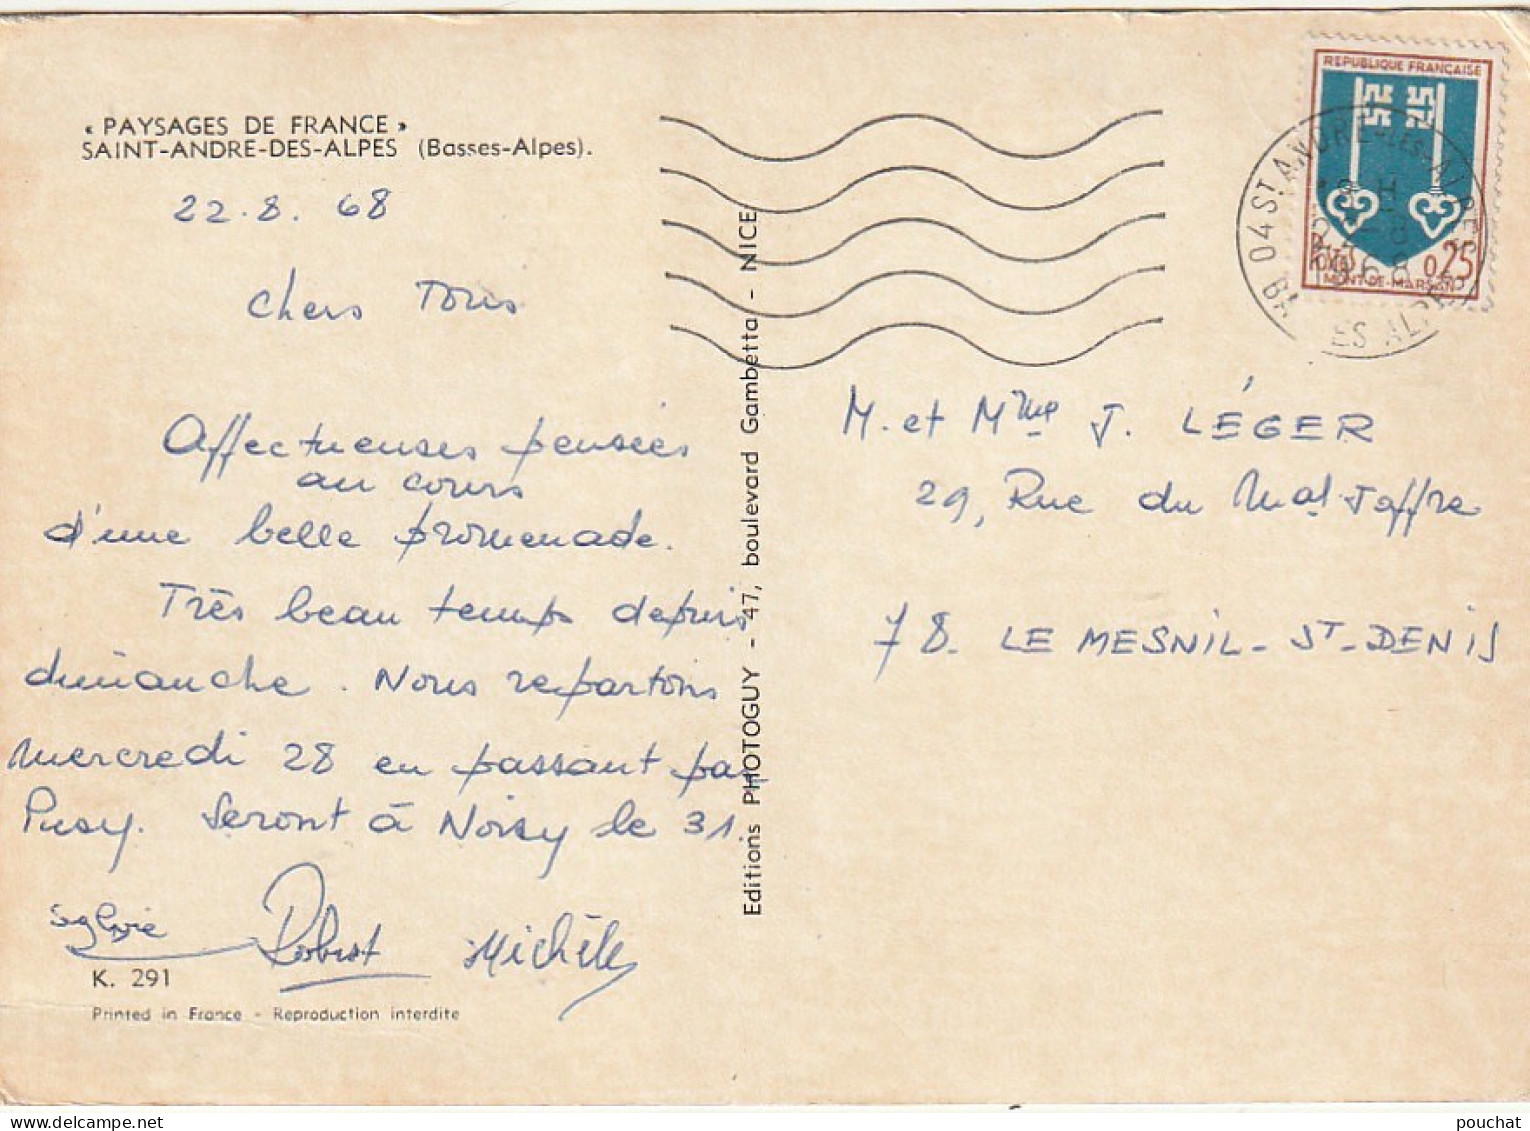 « PAYSAGES DE FRANCE »
SAINT-ANDRE-DES-ALPES (Basses-Alpes).
22.8. 68
Chers Tous
Affectueuses pensées
au cours
d'une belle promenade.
Très beau temps depuis
dimanche. Nous repartons
mercredi 28 en passant par
Pusy. Seront à Noisy le 31
Sylvie Robert Michèle
K. 291
Printed in France - Reproduction interdite
Editions PHOTOGUY - 47, boulevard Gambetta - NICE
REPUBLIQUE FRANÇAISE
POSTES 0,25
MONT-DE-MARSAN
04 ST ANDRE-LES-ALPES
1968
M. et Mme J. LÉGER
29, Rue du Mal Joffre
78- LE MESNIL-ST-DENIS
pouchat